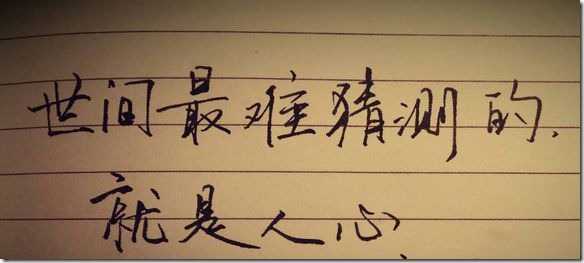 世间最难猜测的.
就是人心.